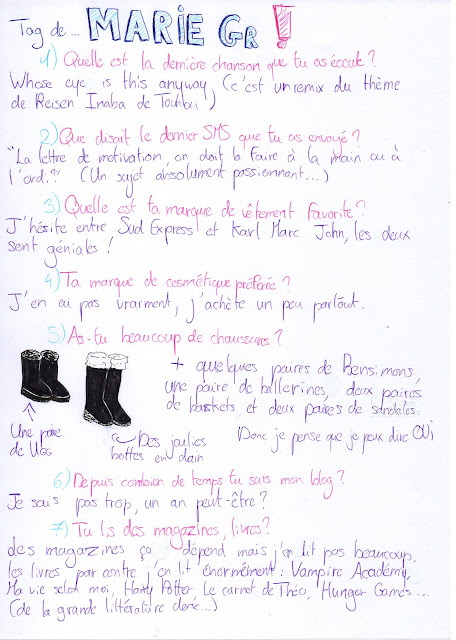 Tag de... MARIE Gr !
1) Quelle est la dernière chanson que tu as écouté ?
Whose eye is this anyway, (c'est un remix du thème
de Reisen Inaba de Touhou !)
2) Que disait le dernier SMS que tu as envoyé ?
"La lettre de motivation, on doit la faire à la main ou à
l'ordi ?" (Un sujet absolument passionnant...)
3) Quelle est ta marque de vêtement favorite ?
J'hésite entre Sud Express et Karl Marc John, les deux
sont géniales !
4) Ta marque de cosmétique préférée ?
J'en ai pas vraiment, j'achète un peu partout.
5) As-tu beaucoup de chaussures ?
+ quelques paires de Bensimons,
une paire de ballerines, deux paires
de baskets, et deux paires de sandales.
Donc je pense que je peux dire OUi
Une paire
de UGG
Des jaulies
bottes en daim
6) Depuis combien de temps tu suis mon blog ?
Je sais pas trop, un an peut-être ?
7) Tu lis des magazines, livres ?
des magazines ça dépend mais j'en lit pas beaucoup,
les livres par contre j'en lit énormément : Vampire Academy,
Ma vie selon moi, Harry Potter, Le carnet de Théo, Hunger Games...
(de la grande littérature donc...)